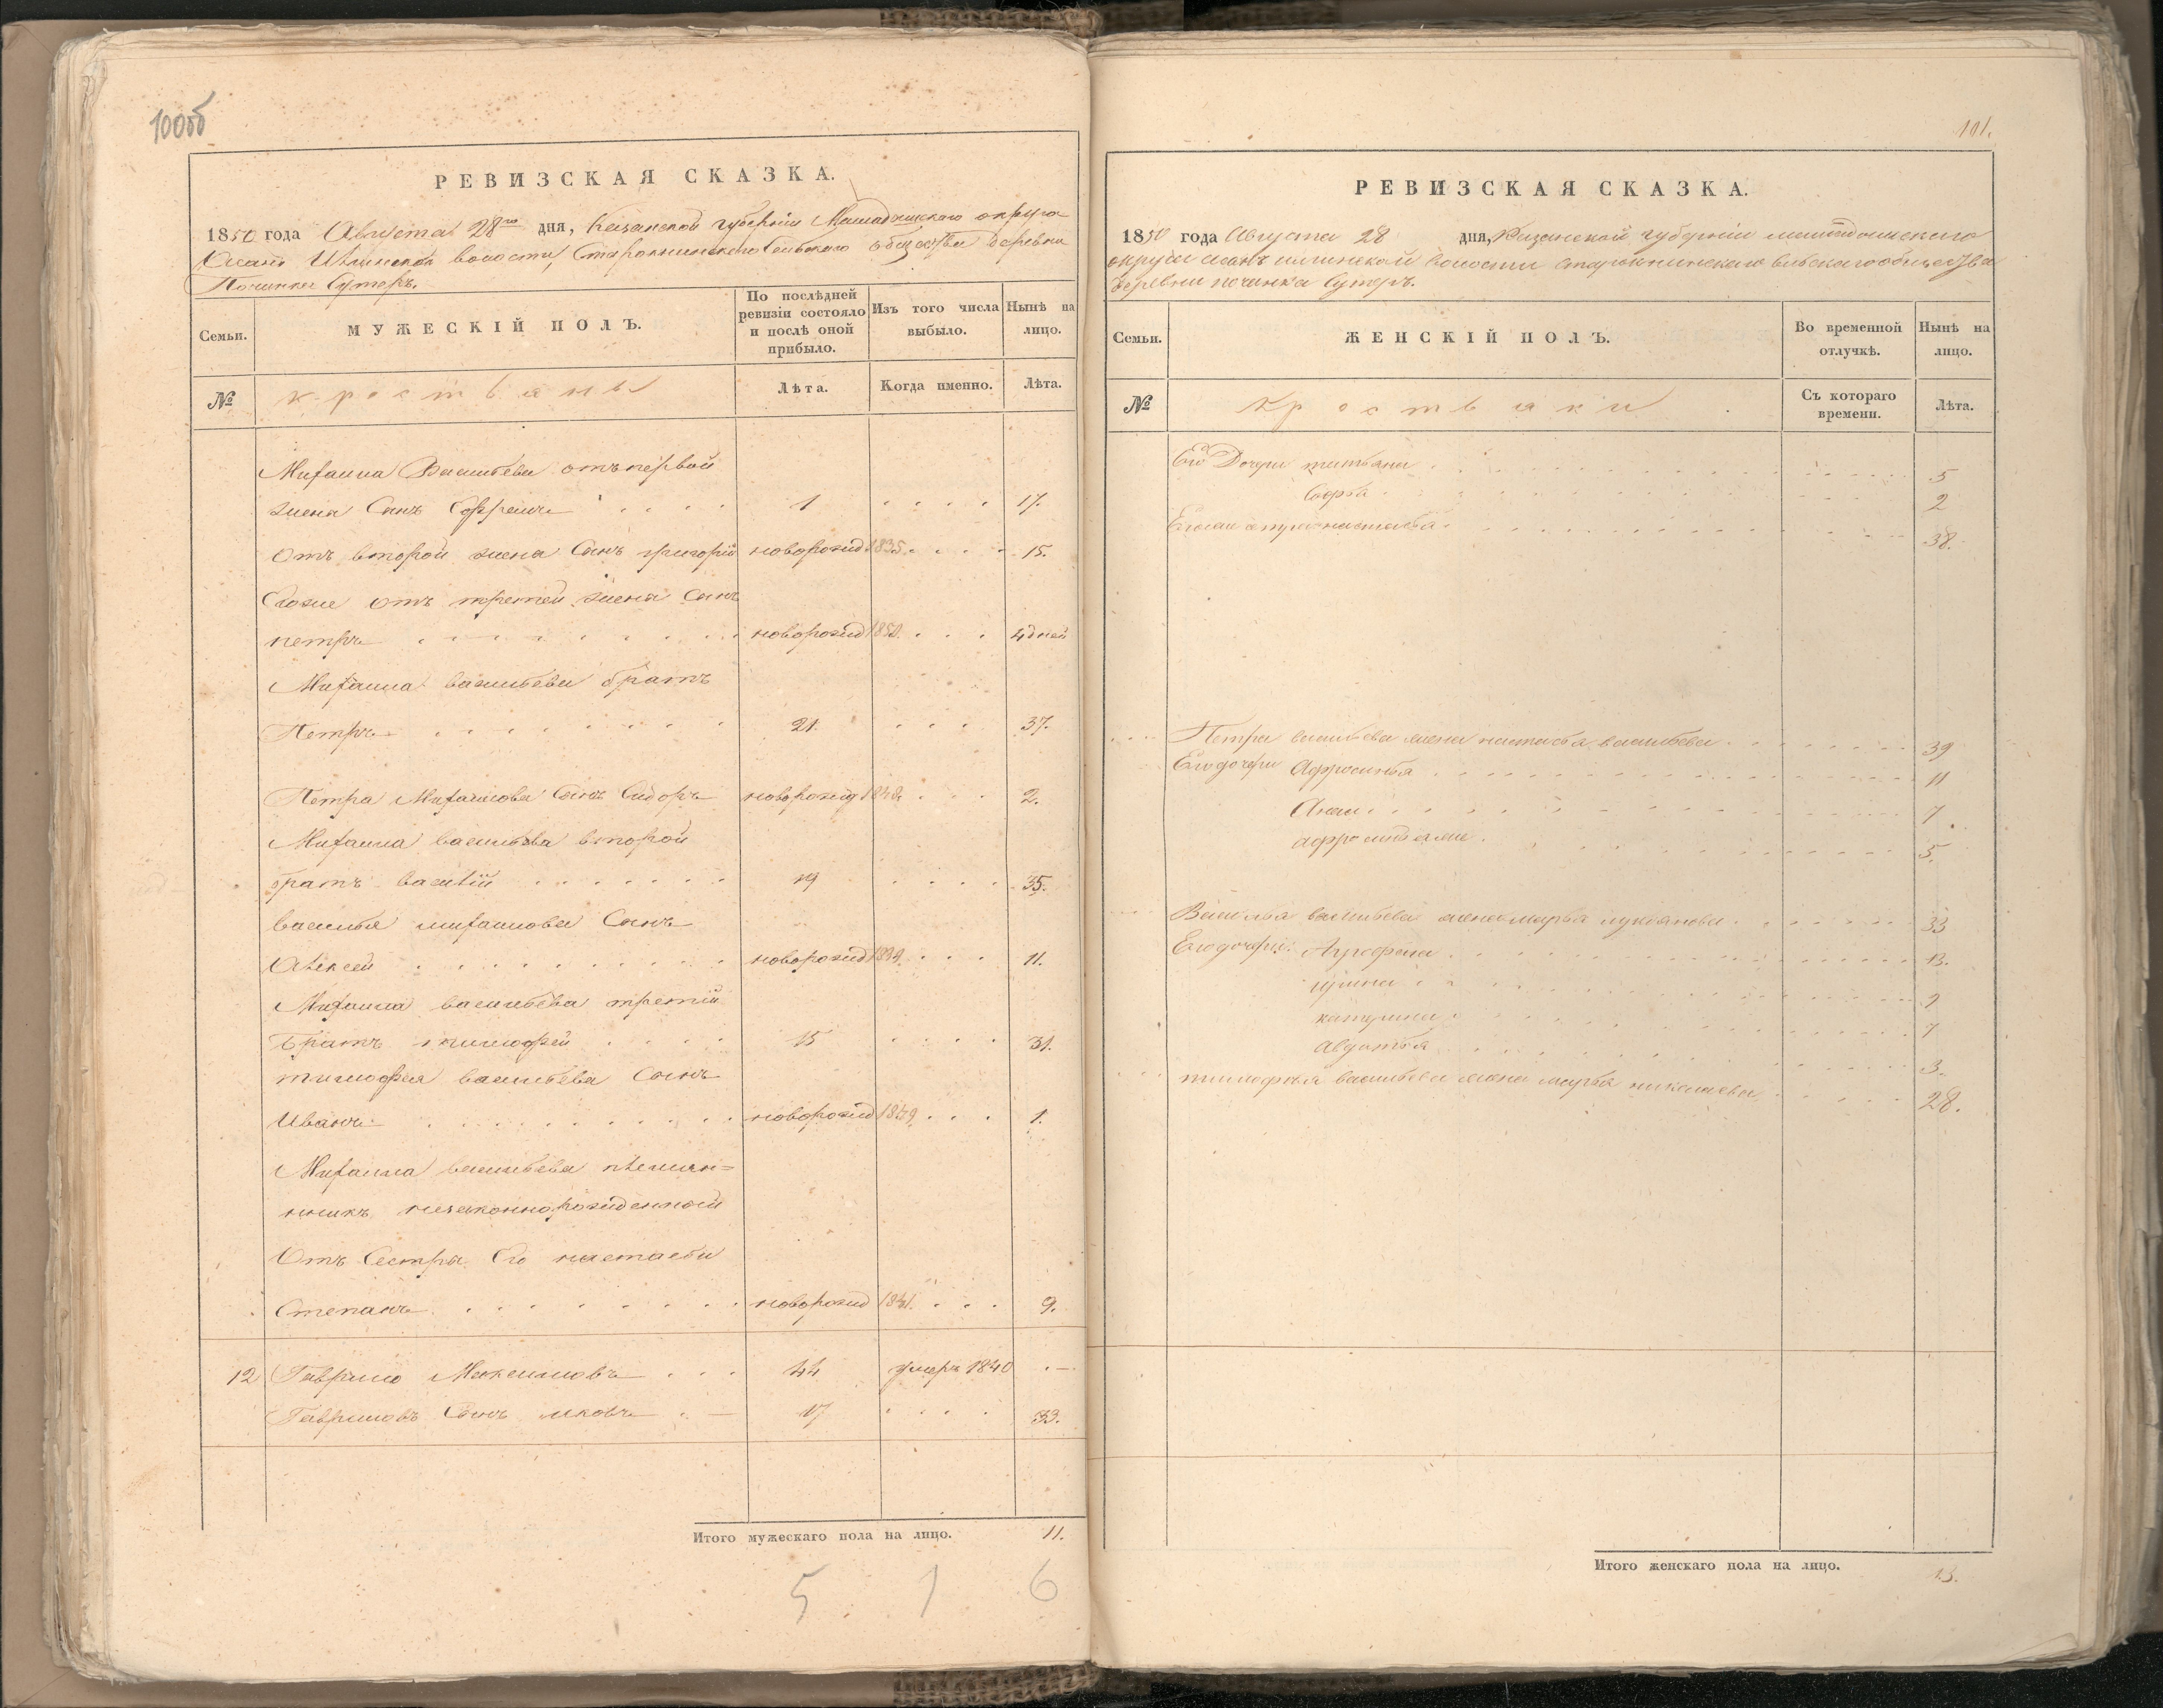 100об
РЕВИЗСКАЯ СКАЗКА.
1850 года Августа 28го дня, Казанской губерніи Мамадышскаго округа
волости, Старокнинскаго Сельскаго общества деревни
Починка Сутеръ.
Семьи.
МУЖЕСКІЙ ПОЛЪ.
По послѣдней ревизіи состояло и послѣ оной прибыло.
Изъ того числа выбыло.
Нынѣ на лицо.
№
крестьяны
Лѣта.
Когда именно.
Лѣта.
Михаила Васильева отъ первой
жены Сынъ Ефремъ 1 17.
Отъ второй жены Сынъ григорій новорожд 1835. 15.
Егоже отъ третей жены Сынъ
петръ новорожд 1850. 4 дней
Михаила васильева братъ
Петръ 21. 37.
Петра Михаилова Сынъ Сидоръ новорожд 1848. 2.
Михаила васильева второй
братъ василій 19 35.
василья михаилова Сынъ
Алексей новорожд 1839. 11.
Михаила васильева третій
Братъ тимофей 15 31.
тимофея васильева Сынъ
Иванъ новорожд 1849. 1.
Михаила васильева племян=
никъ незаконнорожденной
Отъ Сестры Его настасьи
Степанъ новорожд 1841. 9.
12 Гаврило Максимовъ 44 умеръ 1840 —
Гавриловъ Сынъ яковъ — 17 33.
Итого мужескаго пола на лицо. 11.
5. 1 6
101.
РЕВИЗСКАЯ СКАЗКА.
1850 года Августа 28 дня, Казанской губерніи мамадышскаго
округи волости старокнинскаго сельскаго общества
деревни починка Сутеръ.
Семьи.
ЖЕНСКІЙ ПОЛЪ.
Во временной отлучкѣ.
Нынѣ на лицо.
№
Крестьянки
Съ котораго времени.
Лѣта.
Его Дочери татьяна 5
Софья 2
настасья 38.
Петра васильева жена настасья васильева 39
Его дочери Афросинья 11
Анна 7
афросинья же 5.
Василья васильева жена марья лукоянова 33
Его дочери: Аграфена 13.
ирина 9
катерина 7
Авдотья 3.
тимофея васильева жена марья николаева 28.
Итого женскаго пола на лицо. 13.